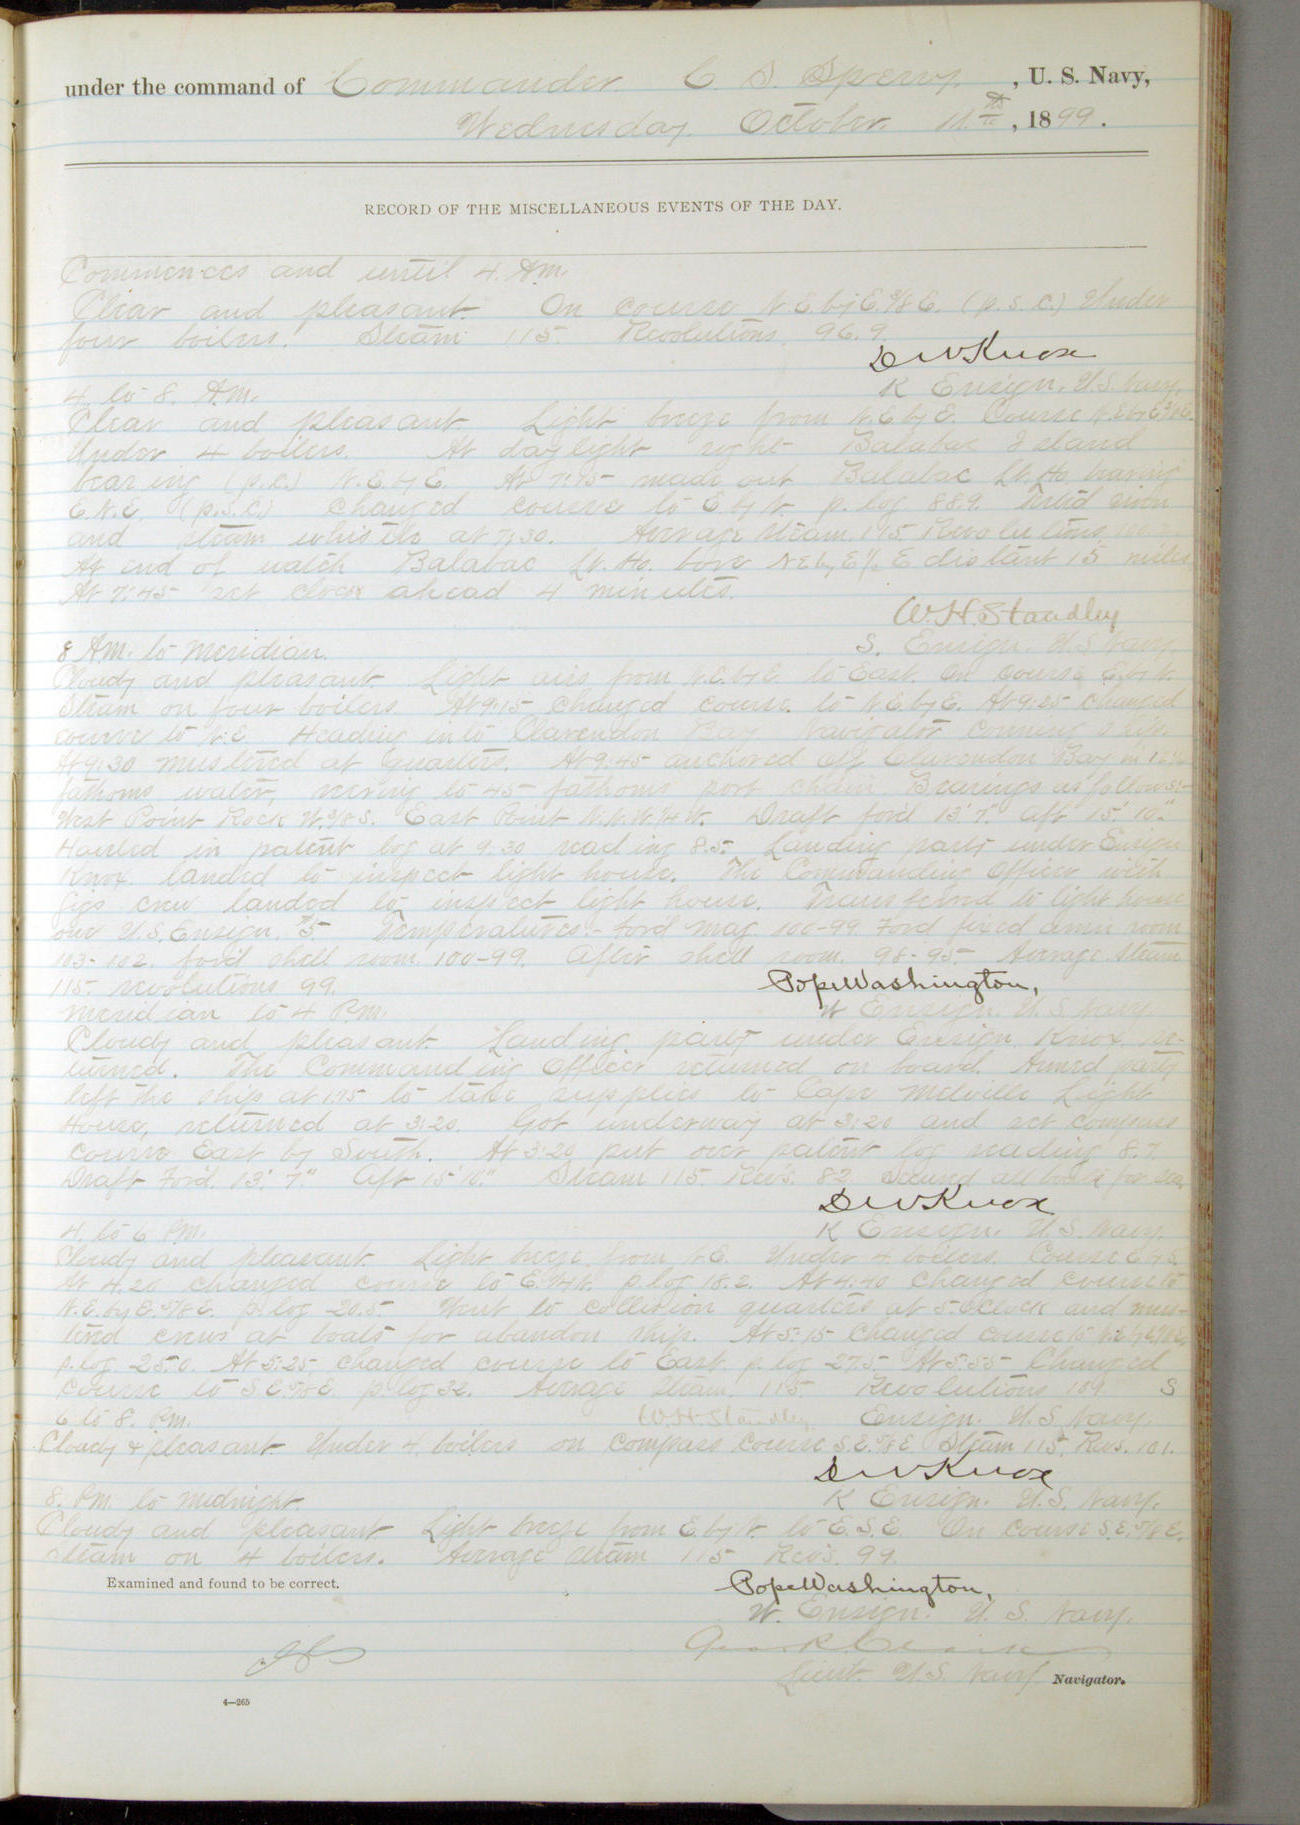 under the command of Commander C. S. Sperry, , U. S. Navy,
Wednesday October 11th, 1899.
RECORD OF THE MISCELLANEOUS EVENTS OF THE DAY.
Commences and until 4. A.m.
Clear and pleasant On course N.E. by E. 7/8 E. (p. s. c.) Under
four boilers. Steam 115 Revolutions 96.9.
D W Knox
K Ensign. U.S. Navy.
4. to 8. A.m.
Clear and pleasant Light breeze from N.E. by E. Course
Under 4 boilers. At daylight sight Balabac Island
bearing (p.c.) N.E. by E. At 7:15 made out Balabac Lt. Ho. bearing
E.N.E. (p.s.c.) Changed course to E by N. p. log 88.9. Tried siren
and steam whistle at 7:30. Average steam 115 Revolutions
At end of watch Balabac Lt. Ho. bore N E by E 1/2 E distant 15 miles
At 7:45 set clock ahead 4 minutes.
W. H. Standley
S. Ensign. U.S Navy.
8 A.m. to meridian.
Cloudy and pleasant. Light airs from N.E. by E. to East. On course E. by N.
Steam on four boilers. At 9:15 changed course to N.E. by E. At 9:25 changed
course to N.E Heading into Clarendon Bay Navigator conning ship.
At 9:30 mustered at Quarters. At 9:45 anchored off Clarendon Bay in
fathoms water, veering to 45 fathoms port chain. Bearings as follows:-
West Point Rock W. 3/8 S. East Point N.N.W. 1/4 W. Draft for'd 13' 7" aft 15' 10".
Hauled in patent log at 9.30 reading 8.5. Landing party under Ensign
Knox. landed to inspect light house. The Commanding Officer with
gigs crew landed to inspect light house. Transferred to light house
one U.S. Ensign, #5. Temperatures - for'd mag. 100-99. For'd fixed amm. room
103-102. for'd shell room 100-99. After shell room. 98-95 Average steam
115. revolutions 99.
Pope Washington,
W Ensign. U. S. Navy.
meridian to 4 P.m.
Cloudy and pleasant. Landing party under Ensign Knox re-
turned. The Commanding Officer returned on board. Armed party
left the ship at 1.15 to take supplies to Cape Melville Light
House, returned at 3:20. Got underway at 3:20 and set compass
course East by South. At 3:20 put over patent log reading 8.7.
Draft For'd. 13' 7" Aft 15' 10" Steam 115. Rev's. 82 Secured all boats for sea.
D W Knox
K Ensign. U.S. Navy.
4. to 6 P.m.
Cloudy and pleasant. Light breeze from N.E. Under 4 boilers. Course E by S.
At 4.20 changed course to E. 3/4 N. p. log 18.2. At 4:40 changed course to
N.E. by E. 7/8 E. p. log 20.5. Went to collision quarters at 5 o'clock and mus-
tered crews at boats for abandon ship. At 5:15 changed course to
p. log 25.0. At 5:25 changed course to East. p. log 27.5. At 5:55 Changed
course to S E. 7/8 E. p. log 32. Average steam 115. Revolutions 109 S
W.H. Standley Ensign. U.S. Navy.
6 to 8. P.m.
Cloudy & pleasant. Under 4 boilers on compass course S.E. 7/8 E. Steam 115. Revs. 101.
D W Knox
K Ensign. U.S. Navy.
8. P.m. to midnight.
Cloudy and pleasant. Light breeze from E. by N. to E.S.E. On course S.E. 7/8 E.
Steam on 4 boilers. Average steam 115 Rev's. 99.
Examined and found to be correct.
Pope Washington,
W. Ensign. U. S. Navy.
Lieut. U.S. Navy. Navigator.
4—265